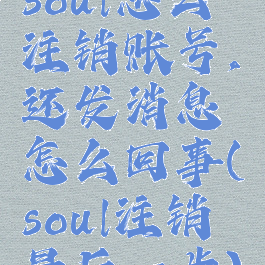 soul怎么
注销账号.
还发消息
怎么回事(
soul注销
最后一步)